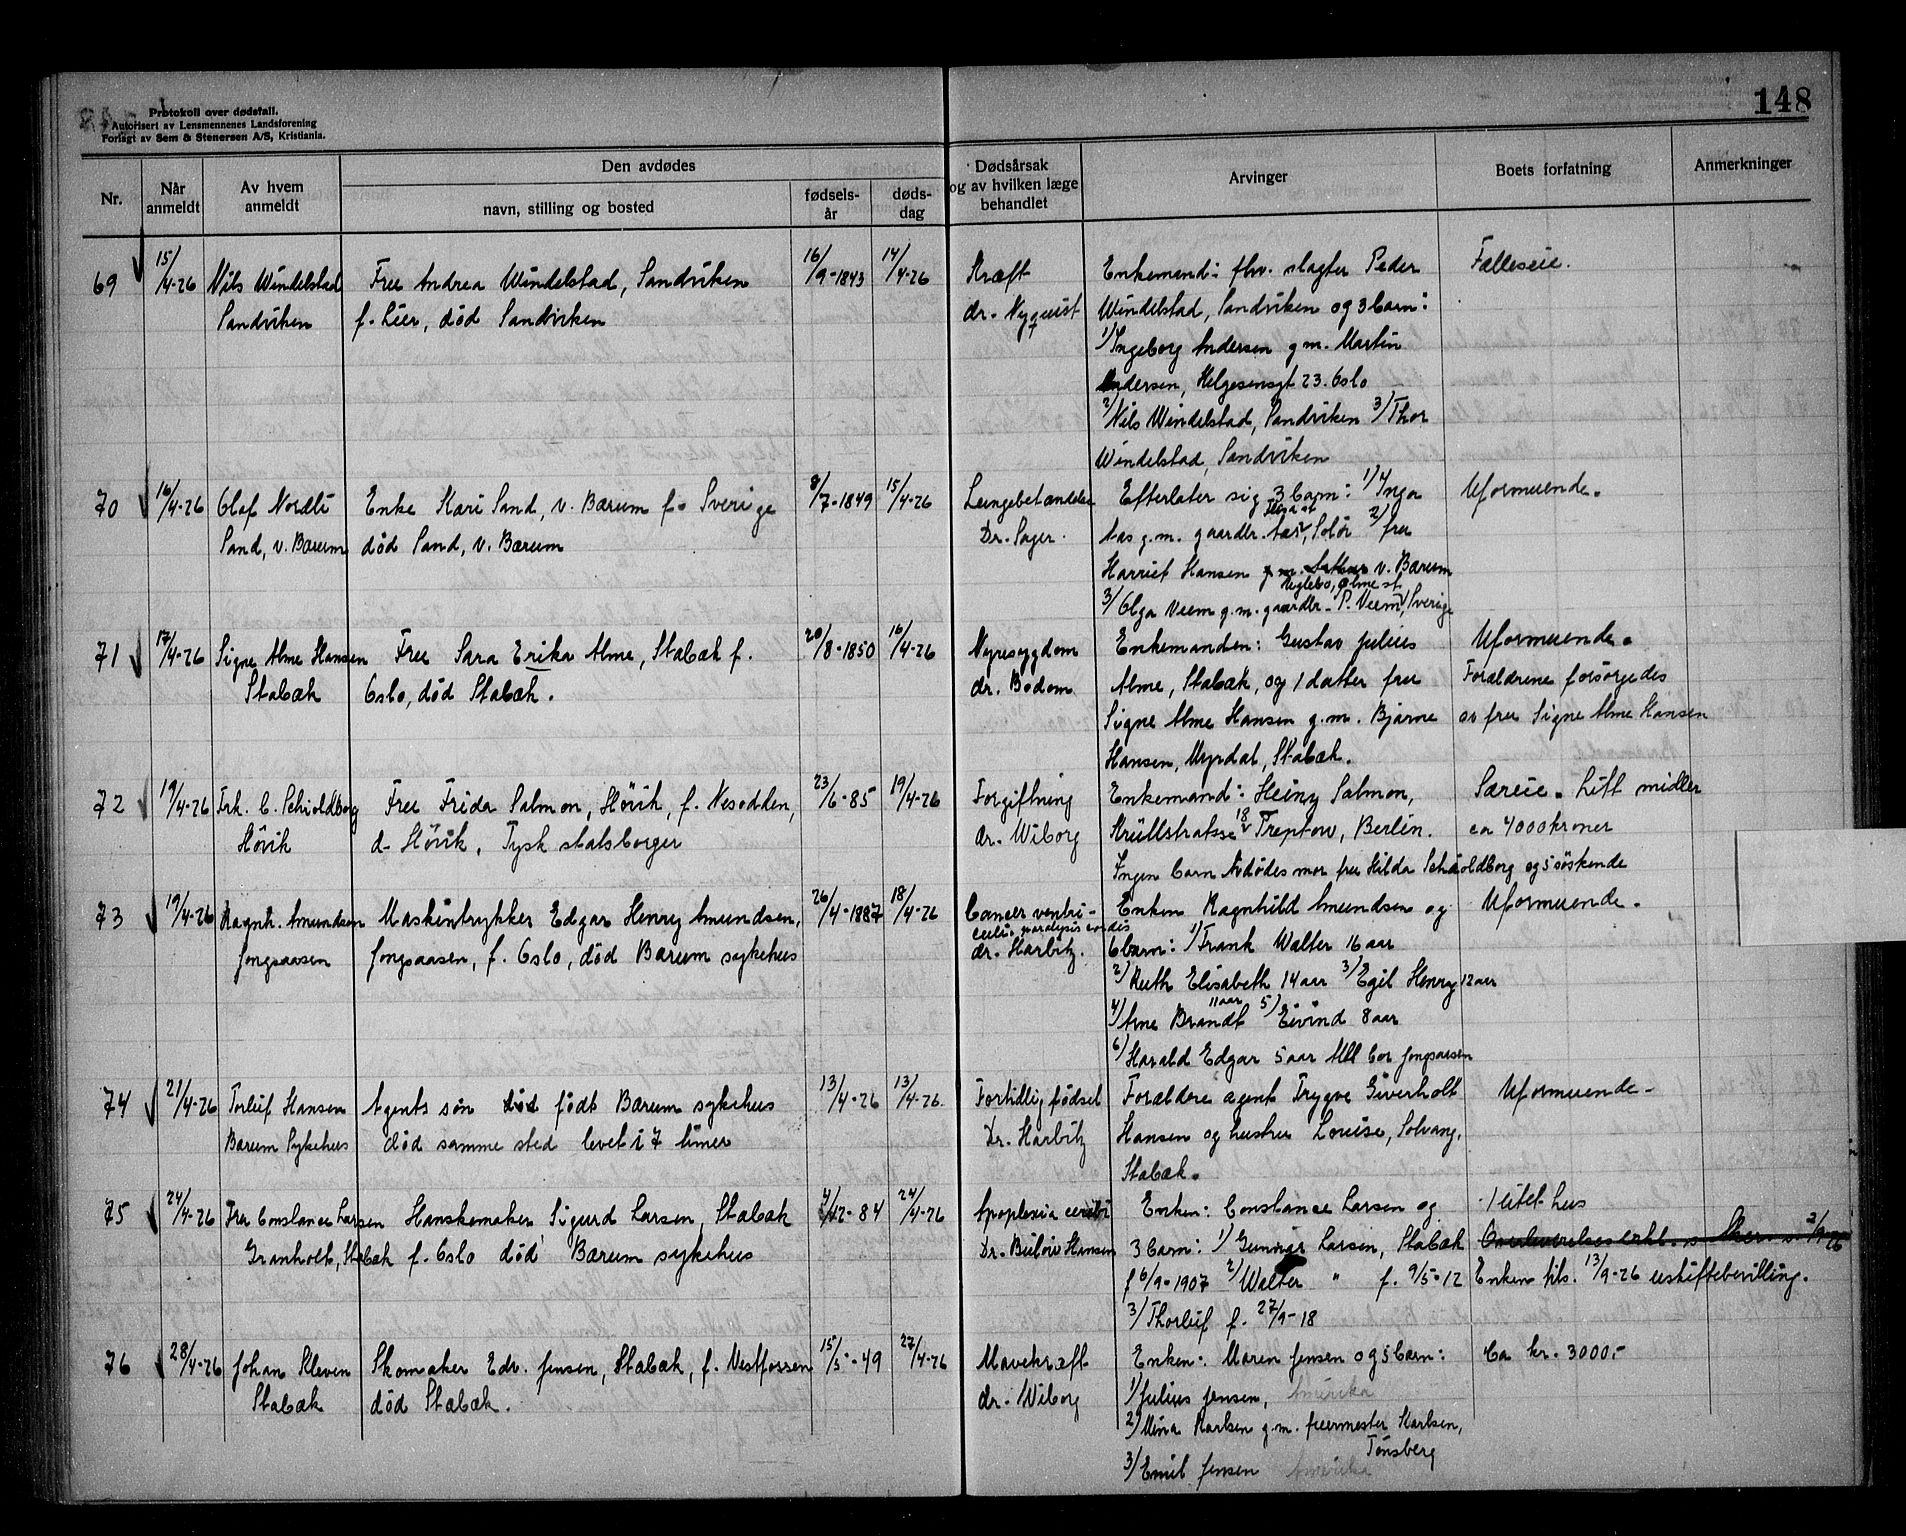 148
Protokoll over dødsfall.
Autorisert av Lensmennenes Landsforening
Forlagt av Sem & Stenersen A/S, Kristiania.
Nr.
Når anmeldt
Av hvem anmeldt
Den avdødes
navn, stilling og bosted
fødsels-år
døds-dag
Dødsårsak og av hvilken læge behandlet
Arvinger
Boets forfatning
Anmerkninger
69 15/4-26 Nils Windelstad Fru Andrea Windelstad, Sandviken 16/9-1843 14/4-26 Kræft Enkemand: fhv. slagter Peder Fælleseie.
Sandviken f. Lier, død Sandviken dr. Nyquist Windelstad, Sandviken og 3 barn:
1/ Ingeborg Andersen g.m. Martin
Andersen, Helgesensgt 23. Oslo
2/ Nils Windelstad, Sandviken 3/ Thor
Windelstad, Sandviken
70 16/4-26 Olaf Nordli Enke Kari Sand, v. Bærum f. Sverige 8/7-1849 15/4-26 Lungebetændelse Efterlater sig 3 barn: 1/ Inga Uformuende.
Sand, v. Bærum død Sand, v. Bærum Dr. Sager. Aas g.m. gaardbr. Aas, Solør 2/ fru
Harriet Hansen g.m. v. Bærum
3/ Olga Veem g.m. gaardbr. P. Veem, Sverige
71 17/4-26 Signe Alme Hansen Fru Sara Erika Alme, Stabæk f. 20/8-1850 16/4-26 Nyresygdom Enkemanden: Gustav Julius Uformuende.
Stabæk Oslo, død Stabæk. dr. Bodom Alme, Stabæk, og 1 datter fru Forældrene forsørgedes
Signe Alme Hansen g.m. Bjarne av fru Signe Alme Hansen
Hansen, Myrdal, Stabæk.
72 19/4-26 Frk. C. Schioldborg Fru Frida Salmon, Høvik, f. Nesodden, 23/6-85 19/4-26 Forgiftning Enkemand: Heinz Salmon, Særeie. Litt midler
Høvik d. Høvik, Tysk statsborger dr. Wiborg Krüllstrasse 18 Treptow, Berlin. ca 4000 kroner
Ingen barn Avdødes mor fru Hilda Schioldborg og 5 søskende
73 19/4-26 Ragnh. Amundsen Maskintrykker Edgar Henry Amundsen, 26/4-1887 18/4-26 Cancer ventri- Enken Ragnhild Amundsen og Uformuende.
culi, paralysis cordis
Jongsaasen Jongsaasen, f. Oslo, død Bærum sykehus dr. Harbitz. 6 barn: 1/ Frank Walter 16 aar
2/ Ruth Elisabeth 14 aar 3/ Egil Henry 12 aar
4/ Arne Brandt 11 aar 5/ Eivind 8 aar
6/ Harald Edgar 5 aar All bor Jongsaasen
74 21/4-26 Torleif Hansen Agents søn død født Bærum sykehus 13/4-26 13/4-26. Fortidlig fødsel Forældere agent Trygve Giverholt Uformuende-
Bærum Sykehus død samme sted levet i 7 timer Dr. Harbitz Hansen og hustru Louise, Solvang,
Stabæk.
75 24/4-26 Fru Constance Larsen Hanskemaker Sigurd Larsen, Stabæk 4/12-84 24/4-26 Apoplexia cerebri Enken: Constance Larsen og 1 litet hus
Granholt, Stabæk f. Oslo død Bærum sykehus Dr. Bülow Hansen 3 barn: 1/ Gunnar Larsen, Stabæk
f 6/9-1907 2/ Walter " f. 9/5-12 Enken tils. 13/9-26 uskiftebevilling.
3/ Thorleif f. 27/9-18
76 28/4-26 Johan Kleven Skomaker Edv. Jensen, Stabæk, f. Vestfossen 15/5-49 27/4-26 Mavekræft Enken: Maren Jensen og 5 barn: Ca kr. 3000,-
Stabæk død Stabæk. dr. Wiborg 1/ Julius Jensen, Amerika
2/ Mina Karlsen g.m. fuermester Karlsen,
Tønsberg
3/ Emil Jensen Amerika